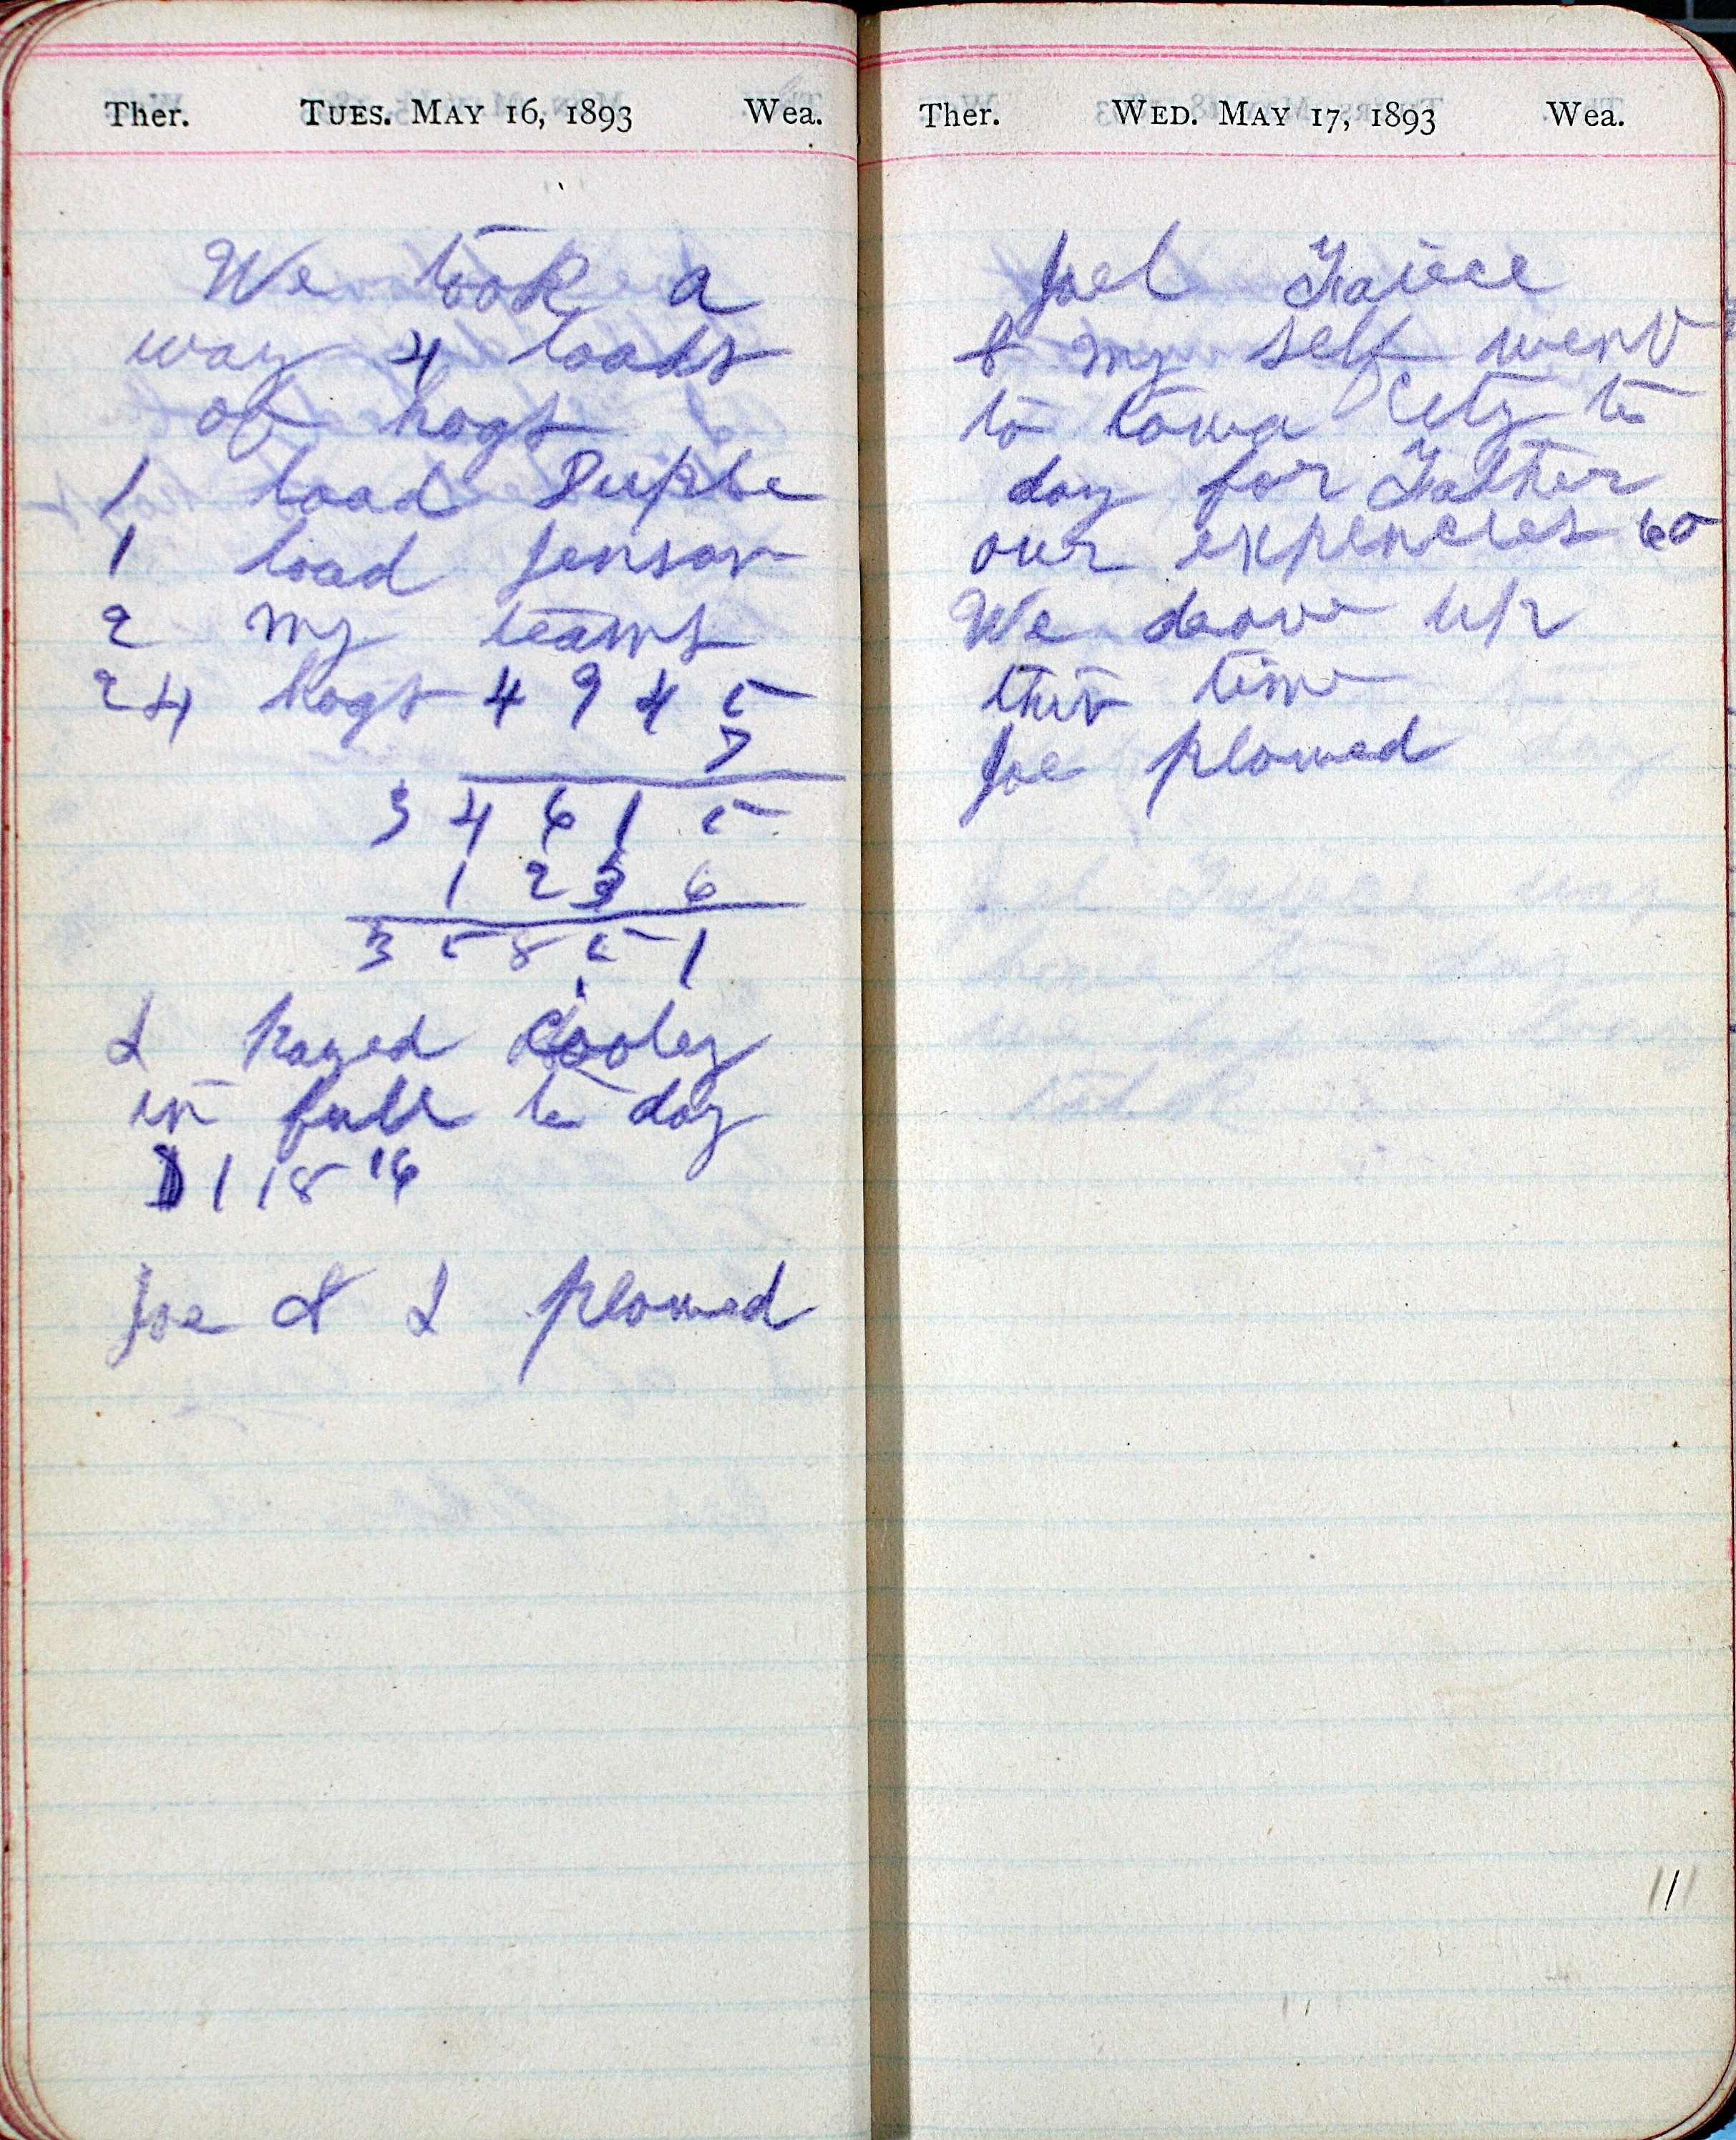 Ther. TUES. MAY 16, 1893 Wea.
We took a
way 4 loads
of hogs
1 load
1 load Jenson
2 my teams
24 hogs 4945
7
34615
1236
35851
I payed Cooley
in full to day
$118 16
Joe & I plowed
Ther. WED. MAY 17, 1893 Wea.
Joel
& my self went
to Iowa City to
day for Father
our expencies 60
We drove up
this time
Joe plowed